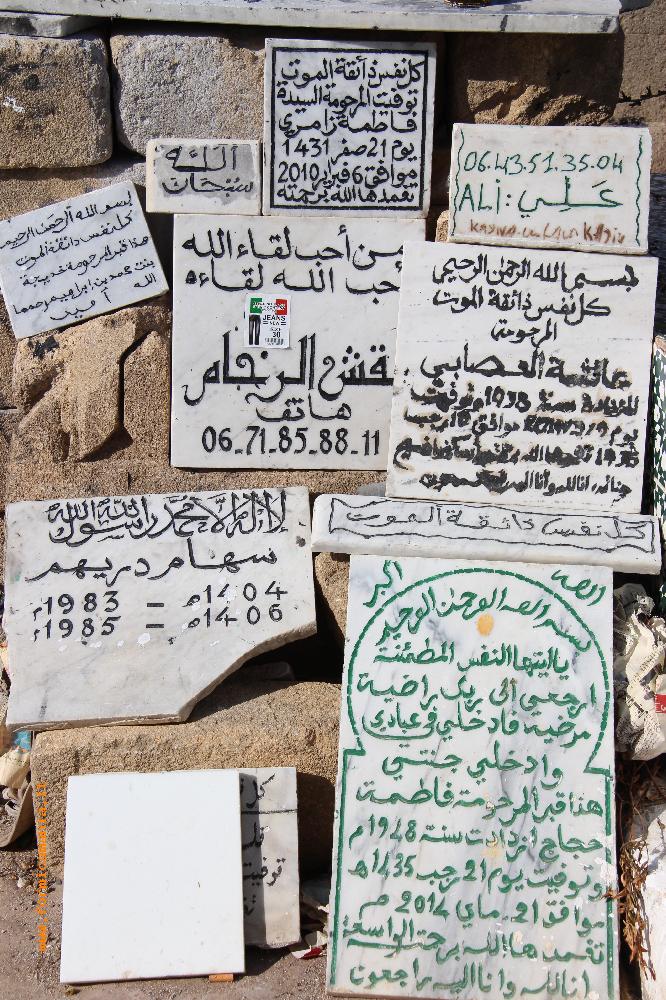 كل نفس ذائقة الموت
توفيت المرحومة السيدة
فاطمة زامري
يوم 21 صفر 1431
موافق 6 فبراير 2010
تغمدها الله برحمته
الله
سبحان
06.43.51.35.04
ALi: عَلِي
بسم الله الرحمن الرحيم
كل نفس ذائقة الموت
هذا قبر المرحومة خديجة
بنت محمد بن ابراهيم رحمها
الله آمين
من أحب لقاء الله
أحب الله لقاءه
JEANS
30
نقش الرخام
هاتف
06_71_85_88_11
بسم الله الرحمن الرحيم
كل نفس ذائقة الموت
المرحومة
عائشة العصابي
سنة 1938 وتوفيت
يوم
لا اله الا الله محمد رسول الله
سهام دريهم
1404ه = 1983م
1406ه = 1985م
كل نفس ذائقة الموت
الله اكبر
بسم الله الرحمن الرحيم
يا ايتها النفس المطمئنة
ارجعي الى ربك راضية
مرضية فادخلي في عبادي
وادخلي جنتي
هذا قبر المرحومة فاطمة
حجاج ازدادت سنة 1948م
وتوفيت يوم 21 رجب 1435هـ
موافق 21 ماي 2014 م
تغمدها الله برحمته الواسعة
انا لله وانا اليه راجعون
كل
توفيت